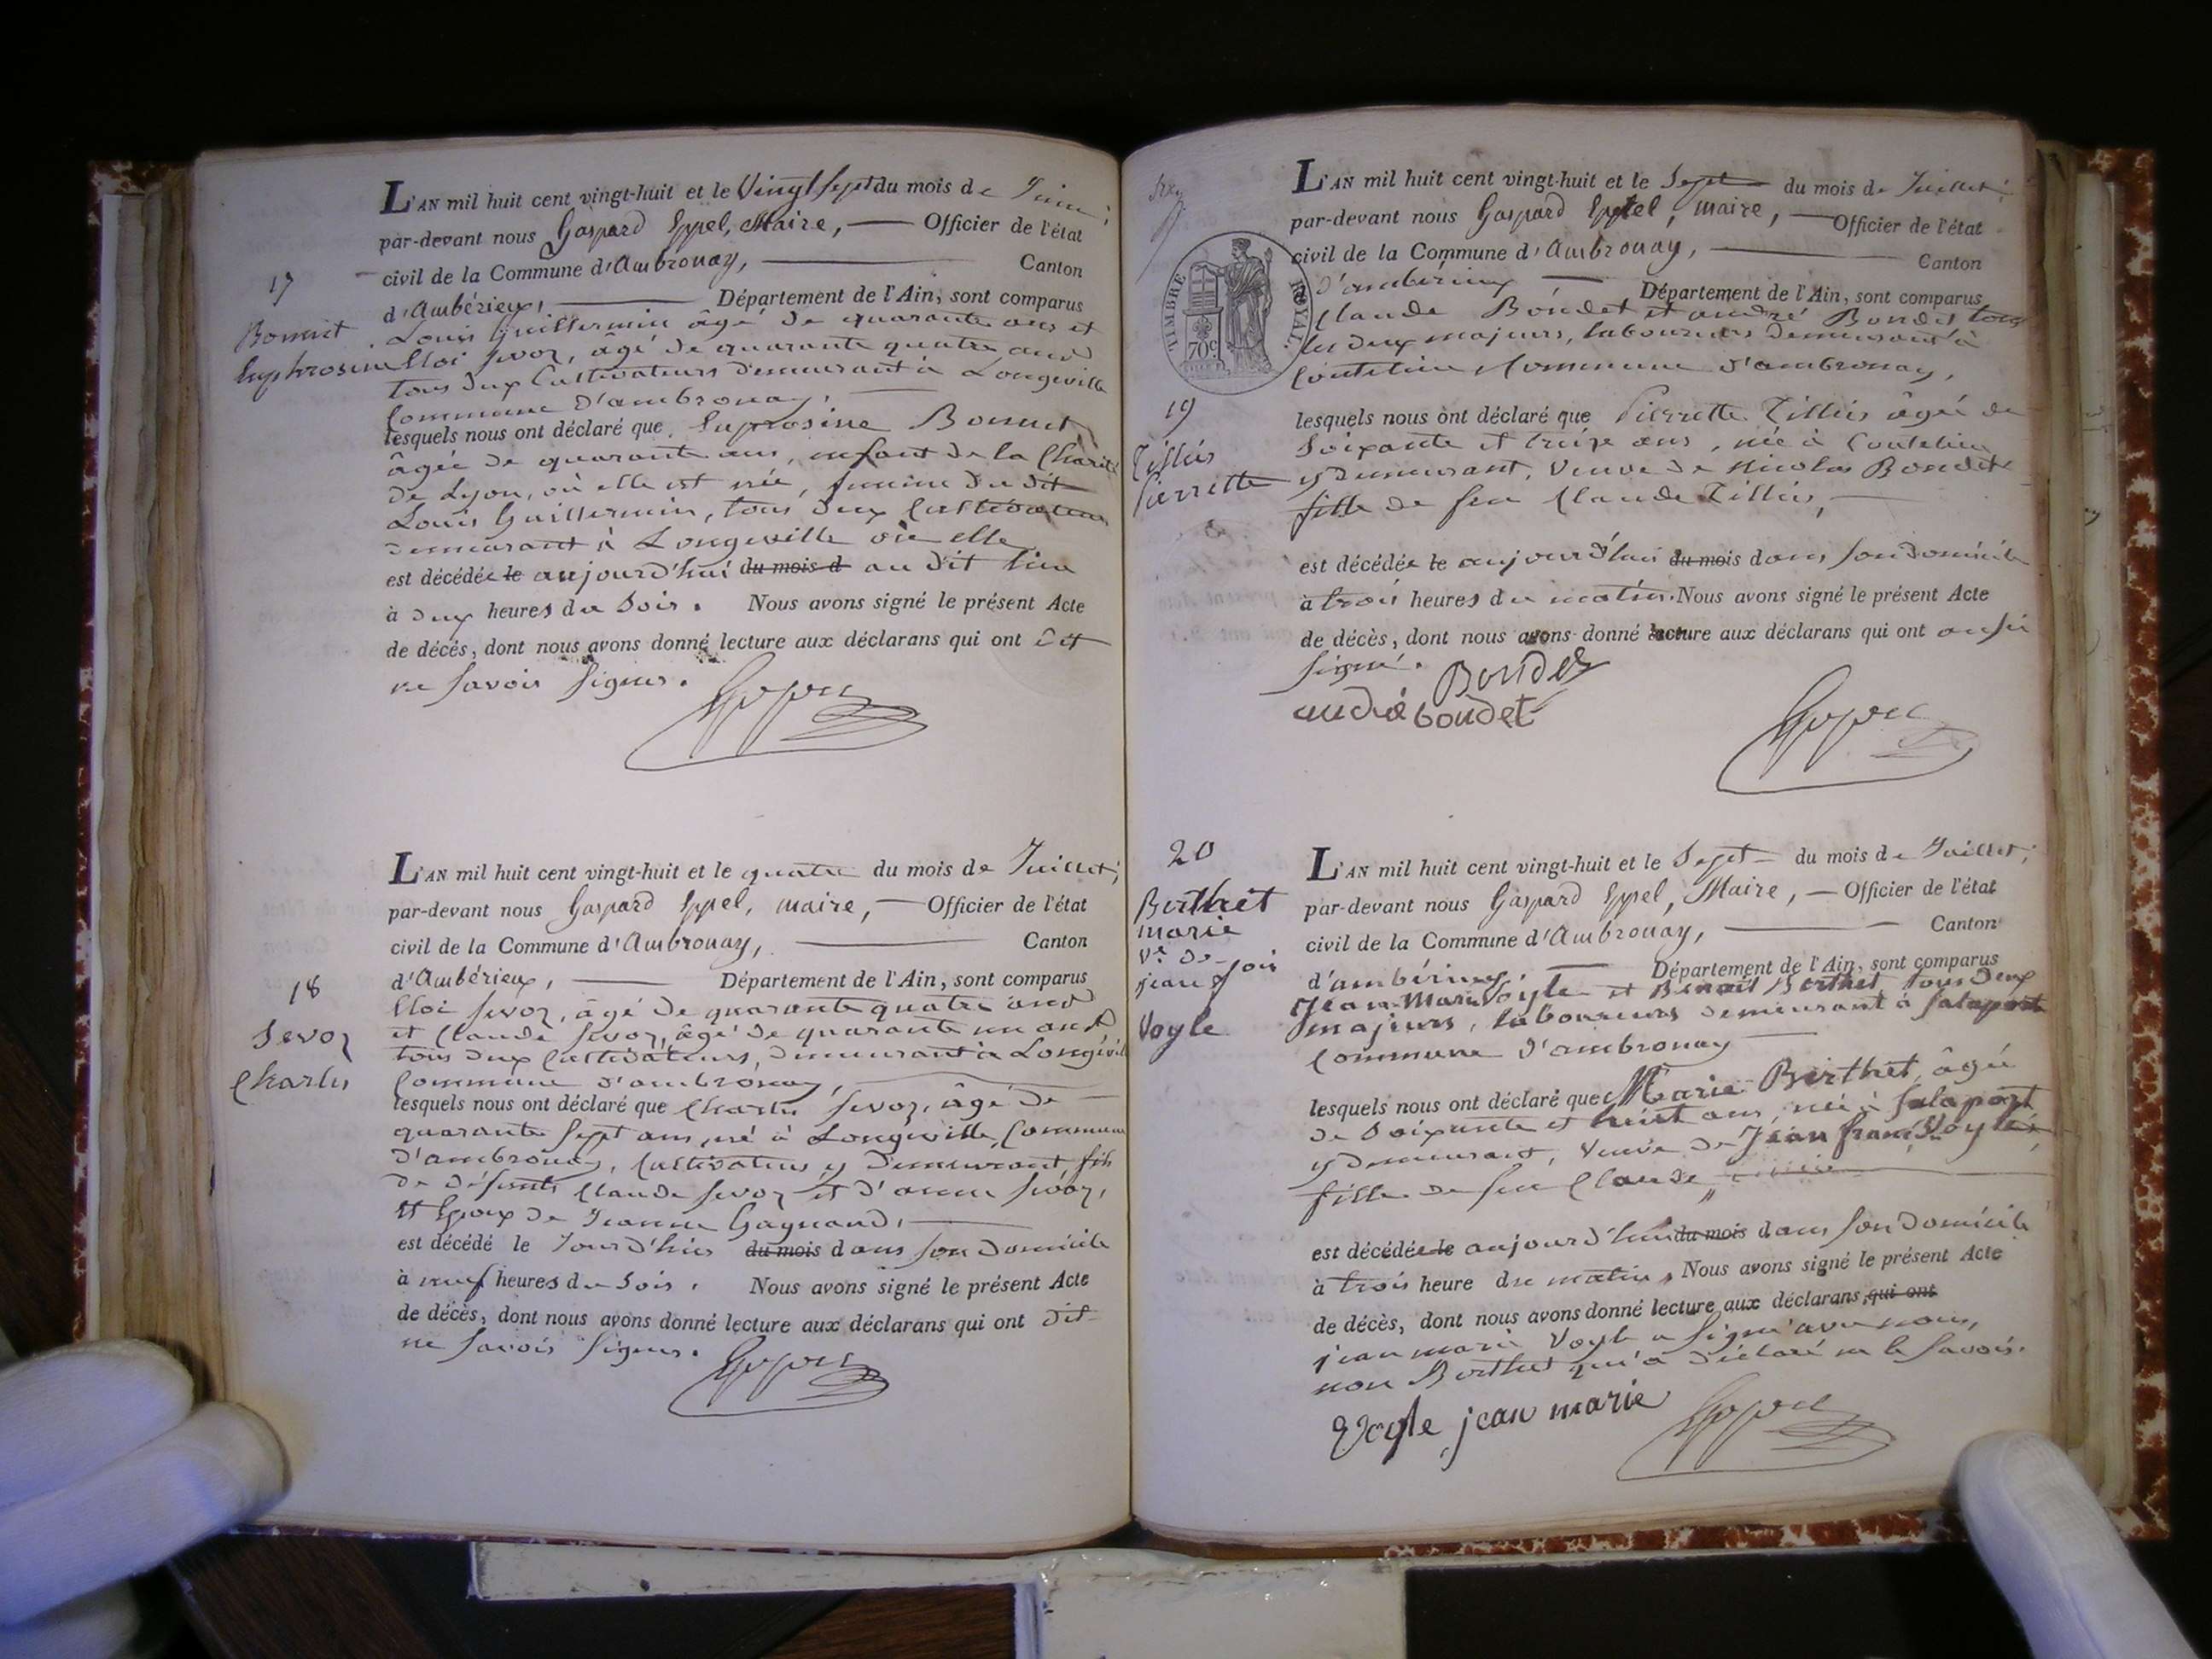 17
Bonnet
Euphrosine
L'AN mil huit cent vingt-huit et le Vingt Sept du mois de Juin ;
par-devant nous Gaspard Eppel, Maire, — Officier de l'état
civil de la Commune d'Ambronay, — Canton
d'Ambérieux, — Département de l'Ain, sont comparus
Louis Guillermin âgé de quarante ans et
Eloi Sevoz, âgé de quarante quatre ans
tous deux Cultivateurs demeurant à Longeville
Commune d'ambronay,
lesquels nous ont déclaré que Euprosine Bonnet
âgée de quarante ans, enfant de la Charité
de Lyon, où elle est née, femme du dit
Louis Guillermin, tous deux Cultivateurs
demeurant à Longeville où elle
est décédée le aujourd'hui du mois d au dit lieu
à deux heures du Soir. Nous avons signé le présent Acte
de décès, dont nous avons donné lecture aux déclarans qui ont dit
ne Savoir Signer.
Eppel
18
Sevoz
Charles
L'AN mil huit cent vingt-huit et le quatre du mois de Juillet ;
par-devant nous Gaspard Eppel, maire, — Officier de l'état
civil de la Commune d'Ambronay, — Canton
d'Ambérieux, — Département de l'Ain, sont comparus
Eloi Sevoz, âgé de quarante quatre ans
et Claude Sevoz, âgé de quarante un ans
tous deux Cultivateurs, demeurant à Longeville
Commune d'ambronay,
lesquels nous ont déclaré que Charles Sevoz, âgé de
quarante Sept ans, né à Longeville, Commune
d'ambronay, Cultivateur y demeurant, fils
de défunts Claude Sevoz et d'anne Sevoz,
et Epoux de Jeanne Gagnand,
est décédé le Jour d'hier du mois dans son Domicile
à neuf heures du Soir. Nous avons signé le présent Acte
de décès, dont nous avons donné lecture aux déclarans qui ont dit
ne Savoir Signer.
Eppel
TIMBRE ROYAL
70c
19
Tillier
Pierrette
L'AN mil huit cent vingt-huit et le Sept du mois de Juillet ;
par-devant nous Gaspard Eppel, maire, — Officier de l'état
civil de la Commune d'Ambronay, — Canton
d'ambérieux — Département de l'Ain, sont comparus
Claude Bondet et andré Bondet tous
les deux majeurs, laboureurs Demeurant à
Coutelieu Commune d'ambronay,
lesquels nous ont déclaré que Pierrette Tillier âgée de
Soixante et treize ans, née à Coutelieu
y Demeurant, Veuve de Nicolas Bondet
fille de feu Claude Tillier,
est décédée le aujourd'hui du mois dans son domicile
à trois heures du matin. Nous avons signé le présent Acte
de décès, dont nous avons donné lecture aux déclarans qui ont aussi
signé.
Bondet
andré bondet
Eppel
20
Berthet
marie
Ve de
jean fois
Voyle
L'AN mil huit cent vingt-huit et le Sept du mois de Juillet ;
par-devant nous Gaspard Eppel, Maire, — Officier de l'état
civil de la Commune d'Ambronay, — Canton
d'ambérieux, — Département de l'Ain, sont comparus
Jean-Marie Voyle et Benoît Berthet tous deux
majeurs, laboureurs demeurant à Salaport
Commune d'ambronay
lesquels nous ont déclaré que Marie Berthet, âgée
de Soixante et huit ans, née à Salaport
y demeurant, Veuve de Jean françois Voyle,
fille de feu Claude
est décédée le aujourd'hui du mois dans son Domicile
à trois heure du matin, Nous avons signé le présent Acte
de décès, dont nous avons donné lecture aux déclarans, qui ont
jean marie Voyle a Signé avec nous,
non Berthet qui a déclaré ne le Savoir.
Voyle jean marie
Eppel